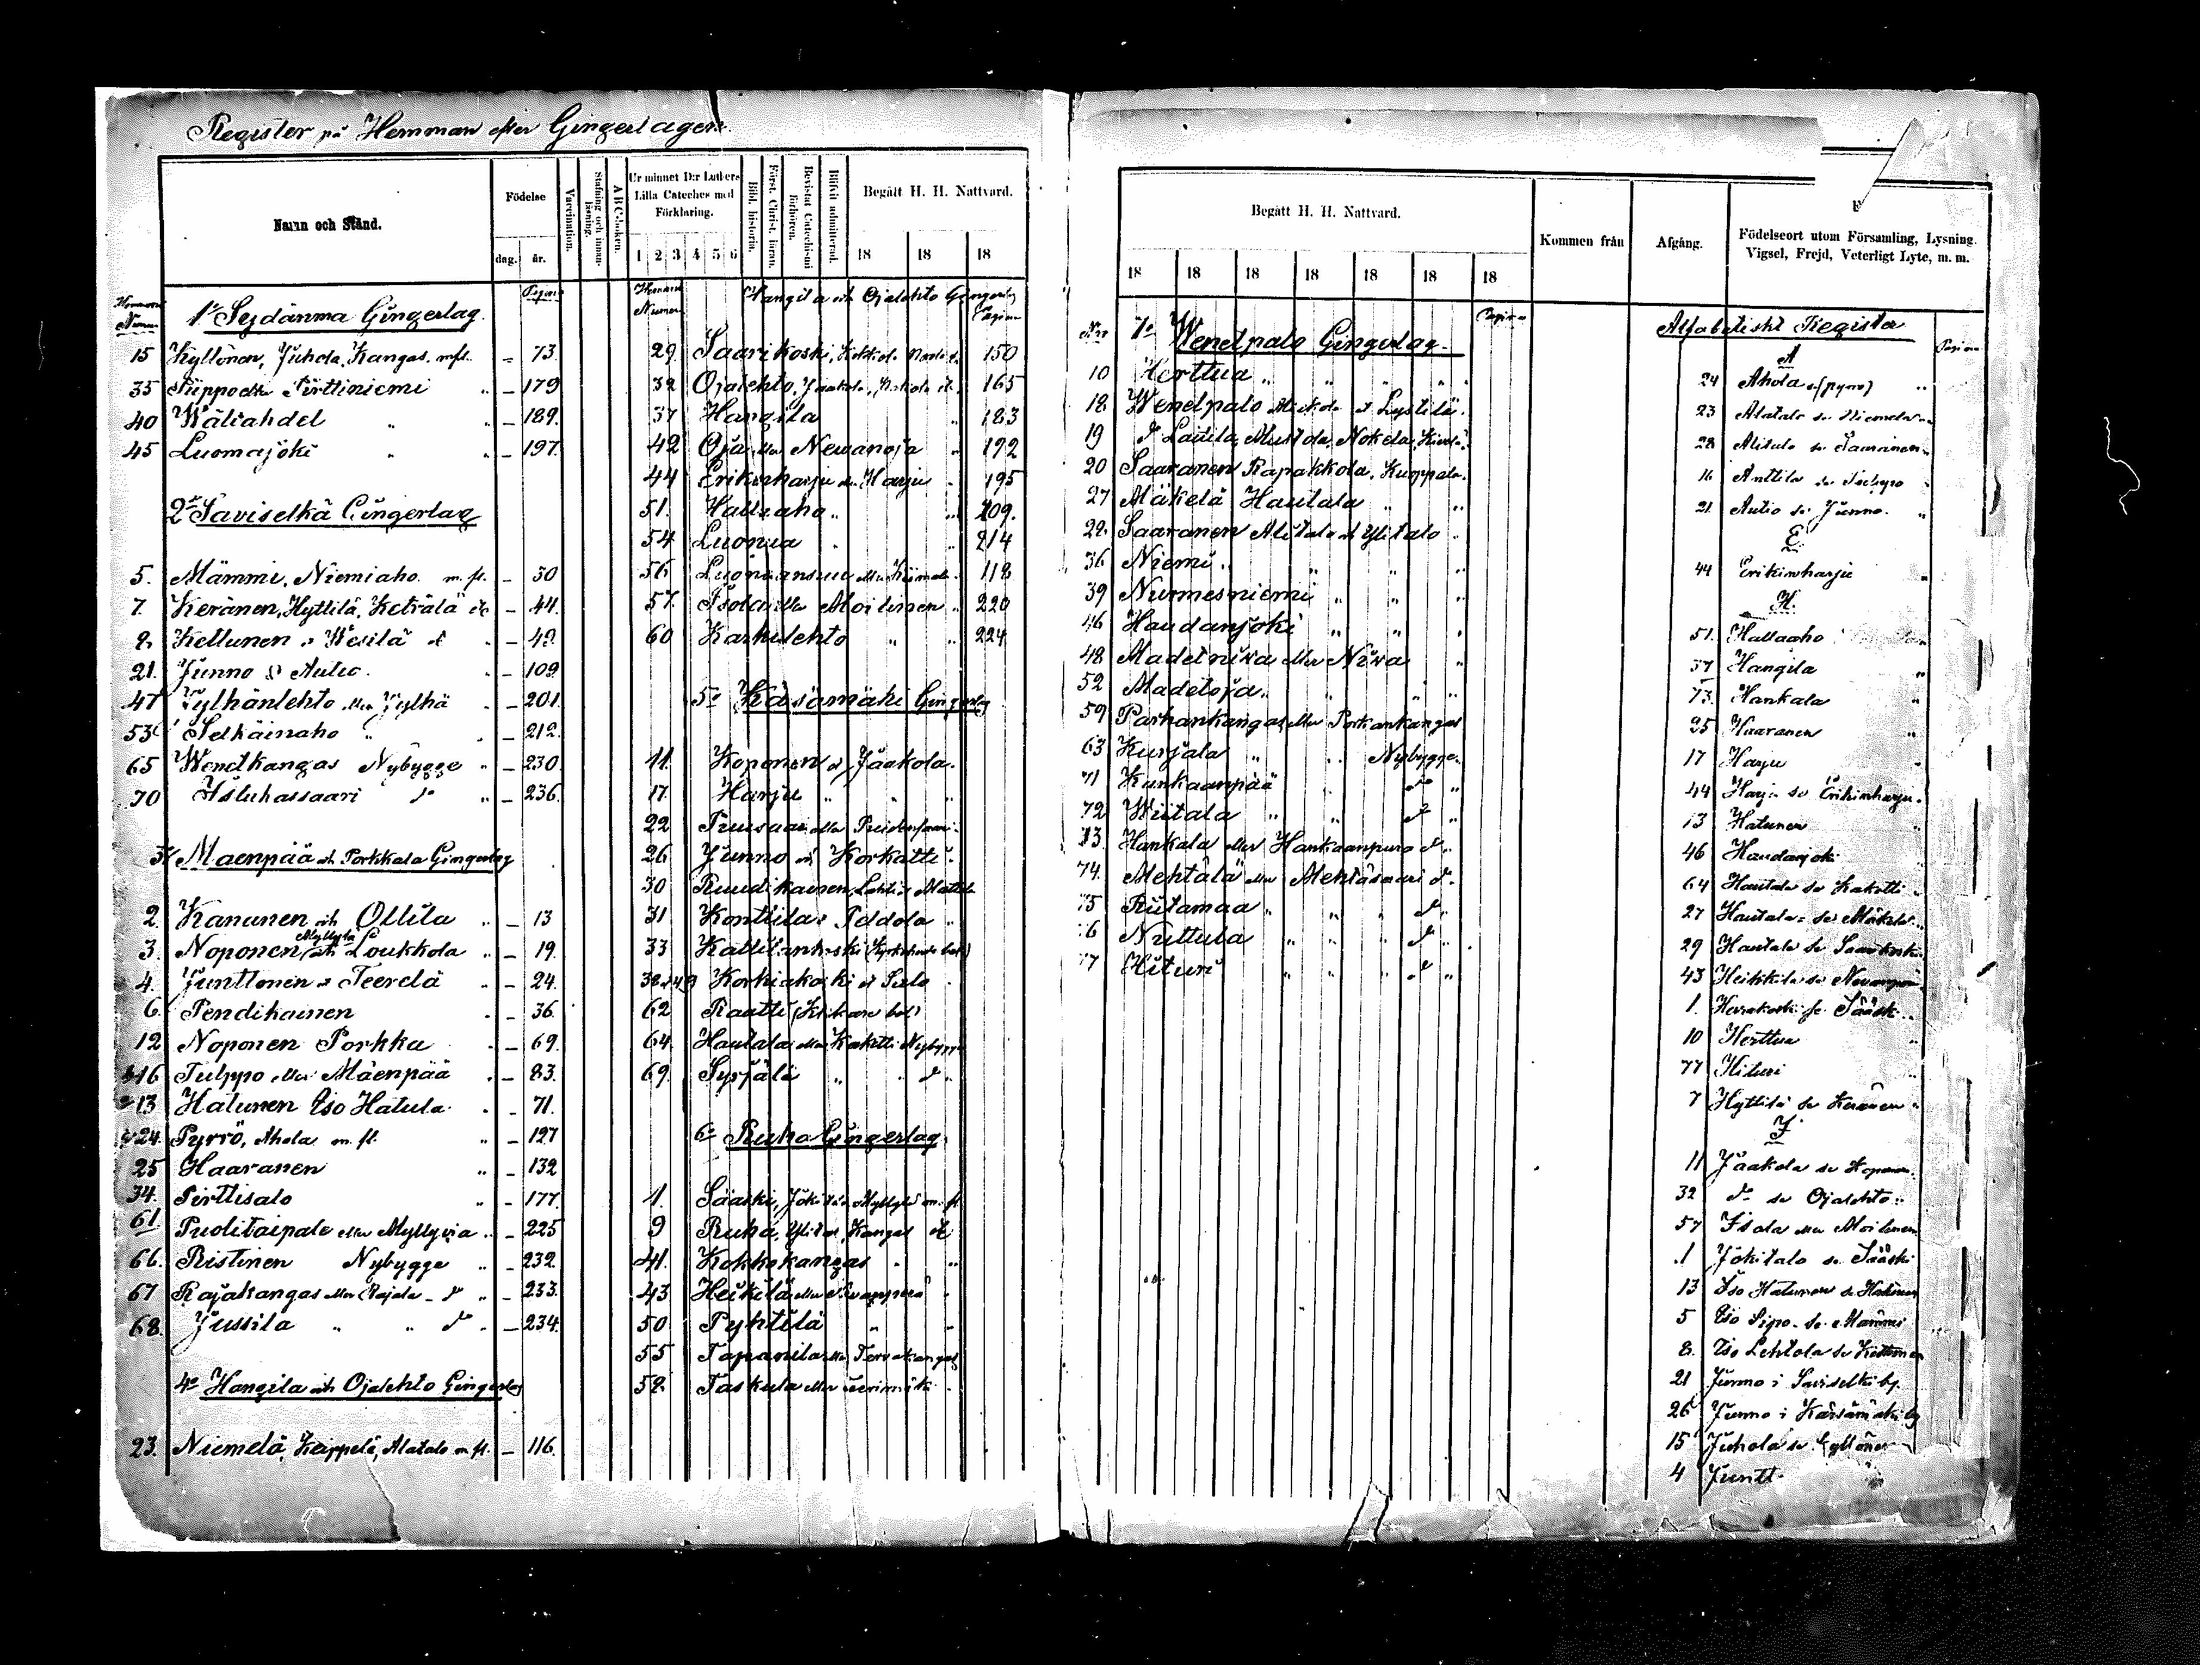 Register på Hemman efter Gingerlagen.
Namn och Stånd.
Födelse
dag. år.
Vaccination.
Stafning och innanläsning.
ABC-boken.
Ur minnet D:r Luthers Lilla Cateches med Förklaring.
1 2 3 4 5 6
Bibl. historia.
Först. Christ. läran.
Bevistat Catechismi förhören.
Blifvit admitterad.
Begått H. H. Nattvard.
18 18 18
Hemmans Numer
Pagina
1º Sydänma Gingerlag
15 Kyllönen, Juhola, Kangas m.fl. 73.
35 Piippo eller Pirttiniemi 179
40 Wäliahdel 189.
45 Luomajoki 197.
2º Saviselkä Gingerlag
5. Mämmi, Niemiaho m. fl. 30
7. Keränen, Hyttilä, Keträlä 44.
8. Kettunen o Wesilä 49.
21. Junno o Autio. 109
47 Jylhänlehto eller Jylhä 201.
53 Selkäinaho 212.
65 Wendkangas Nybygge 230.
70 Isluhassaari dº 236.
3º Maenpää och Porkkala Gingerlag
2. Kananen och Ollila 13
3. Noponen, Myllylä och Loukkola 19.
4. Junttonen o Teerelä 24.
6. Pendikainen 36.
12 Noponen Porkka 69.
16 Tulppo eller Mäenpää 83.
13 Hatunen Iso Hatula 71.
24. Pyrrö, Ahola m. fl. 127
25 Haaranen 132
34. Pirttisalo 177.
61 Puolitaipale eller Myllyoja 225
66. Ristinen Nybygge 232.
67 Rajakangas eller Rajala dº 233.
68. Jussila dº 234.
4º Hangila och Ojalehto Gingerlag
23. Niemelä, Keippelä, Alatalo m. fl. 116.
Hemmans Numer
Hangila och Ojalehto Gingerlag
Pagina
29. Saarikoski, 150
32 Ojalehto, Jaakola, 165
37 Hangila 183
42 Oja eller Newanoja 192
44 Erikinharju eller Harju 195
51. Hallaaho 209.
54 Luonua 214
56 118
57. Isola eller Moilanen 220
60 Karhulehto 224
5º Kärsämäki Gingerlag
11. Koponen o Jaakola.
17. Harju
22
26 Junno o Korkatti.
30 Ruudikainen,
31 Konttila o Pddola
33
38 o 49 Korkiakoski o Salo
62 Rautti
64. Hautala eller Kakotti Nybygge
69. Syrjälä dº
6º Ruha Gingerlag
1. Sääski, Jokitalo Myllylä m. fl
9 Ruha, Ylitalo, Kangas
41. Kokkokangas
43 Heikilä eller
50 Pyhtilä
55 Tapanila eller Tervakangas
58. Taskula eller
Begått H. H. Nattvard.
18 18 18 18 18 18 18
Kommen från
Afgång.
Födelseort utom Församling, Lysning. Vigsel, Frejd, Veterligt Lyte, m. m.
Nro 7º Wenetpalo Gingerlag. Pagina
10 Herttua
18. Wenetpalo Mickola o Lystilä.
19 dº Lautila, Mustola, Nokela,
20 Saaranen Rapakkola, Kuppala.
27 Mäkelä Hautala
28. Saaranen Alitalo och Ylitalo
36 Niemi
39 Nurmesniemi
46 Haudanjoki
48 Madetniva eller Niva
52 Madetoja
59 Parhankangas eller Porkankangas
63 Kurjala Nybygge.
71 Kankaanpää dº
72 Wiitala dº
73. Hankala eller Hankaanpuro dº
74. Mehtälä eller Mehtäsaari dº
75 Riitamaa dº
76 Nuttula dº
77 Hituri dº
Alfabetiskt Register
Pagina
A
24 Ahola se (pyrrö)
23 Alatalo se Niemelä
28 Alitalo se Saaranen
16 Anttila se Tulppo
21. Autio se Junno.
E.
44 Erikinharju
H.
51. Hallaaho
37 Hangila
73. Hankala
25 Haaranen
17 Harju
44 Harju se Erikinharju.
13 Hatunen
46 Haudanjoki
64 Hautala se Kakotti
27 Hautala se Mäkelä
29 Hautala se Saarikoski
43 Heikkila se Nevanpää
1. se Sääski
10 Herttua
77 Hituri
7 Hyttilä se Keränen
J
11 Jaakola se Koponen.
32 dº se Ojalehto
57 Isola eller Moilanen
1 Jokitalo se Sääski
13 Iso Hatunen se Hatunen
5 Iso Sipo se Mämmi
8. Iso Lehtola se Kettunen
21 Junno i Saviselkä by.
26 Junno i Kärsämäki by
15 Juhola se Kyllönen
4 Juntt